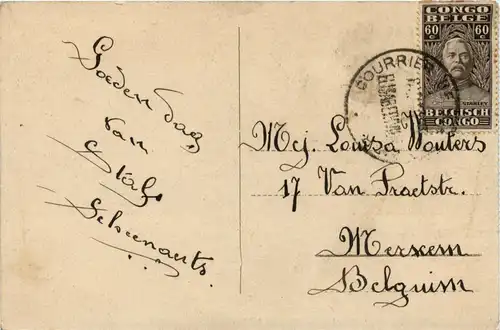 Goeden dag
van
Stal.
Schoenaerts.
CONGO
BELGE
60 60
C C
STANLEY
BELGISCH
CONGO
COURRIER
Mej. Louisa Wouters
17 Van Praetstr.
Merxem
Belguim